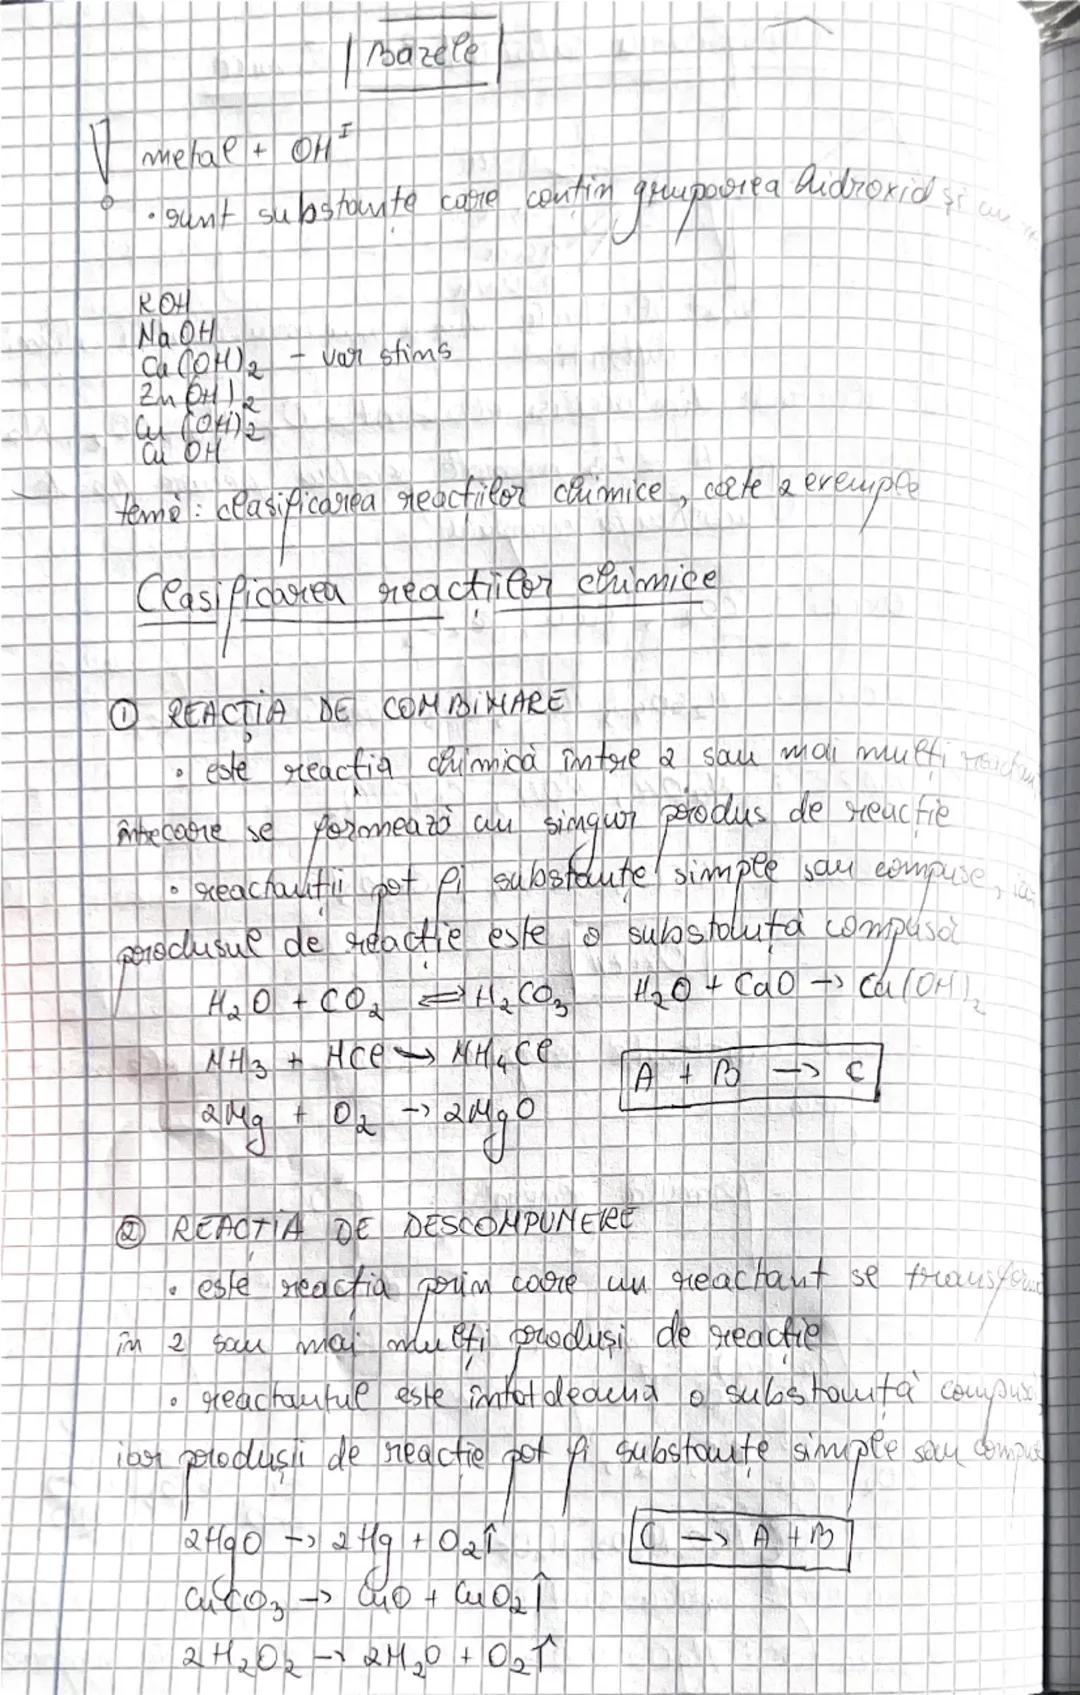 Bazele
metal + OH^I
• sunt substanțe care conțin gruparea hidroxid și un
KOH
NaOH
Ca(OH)2 - var stins
Zn(OH)2
Cu(OH)2
CuOH
temă: clasificarea reacțiilor chimice, câte 2 exemple
Clasificarea reacțiilor chimice
① REACȚIA DE COMBINARE
• este reacția chimică între 2 sau mai mulți reactanți
în care se formează un singur produs de reacție
• reactanții pot fi substanțe simple sau compuse, iar
produsul de reacție este o substanță compusă
H2O + CO2 ⇌ H2CO3 H2O + CaO → Ca(OH)2
NH3 + HCl → NH4Cl
A + B → C
2Mg + O2 → 2MgO
② REACȚIA DE DESCOMPUNERE
• este reacția prin care un reactant se transformă
în 2 sau mai mulți produși de reacție
• reactantul este întotdeauna o substanță compusă
iar produșii de reacție pot fi substanțe simple sau compuse
2HgO → 2Hg + O2↑ C → A + B
CuCO3 → CuO + CuO2↑
2H2O2 → 2H2O + O2↑